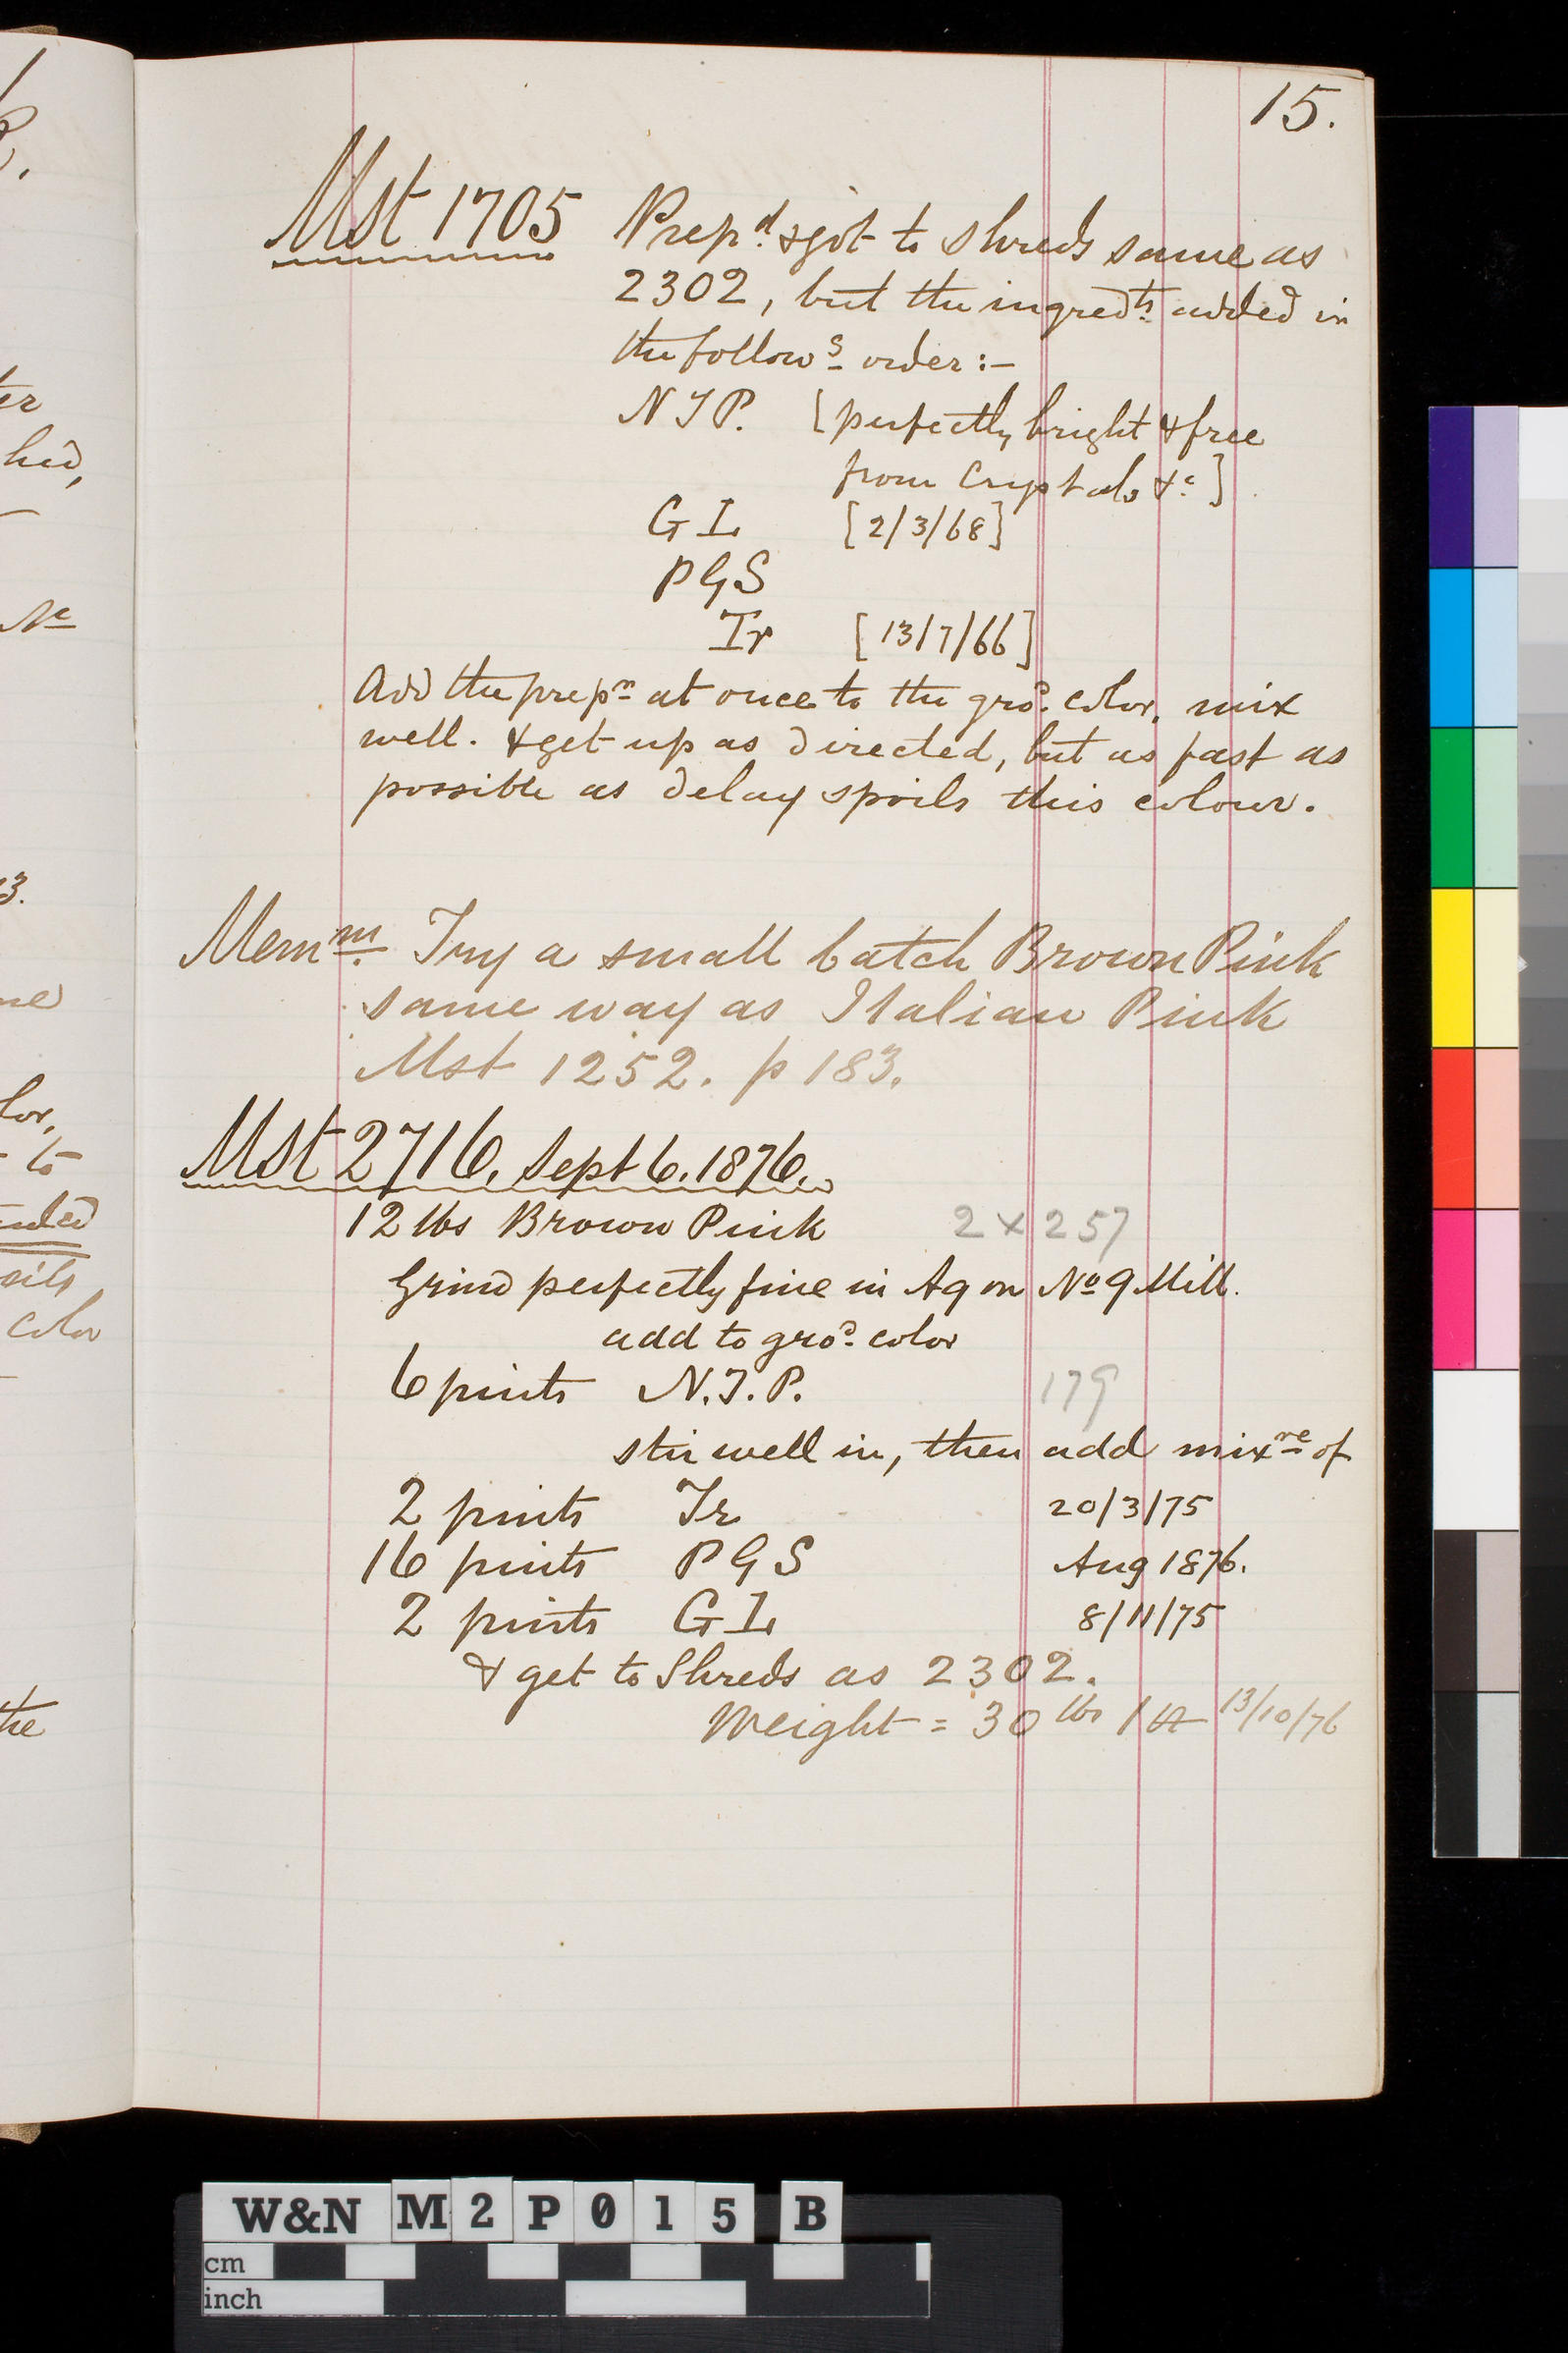 15.
Mst 1705 Prepd. & got to shreds same as
2302, but the ingredts. added in
the followg order :-
N J P. [perfectly bright & free
from Crystals &c.]
G L [2/3/68]
P G S
Tr [13/7/66]
Add the prepn at once to the grod. color, mix
well. & get up as directed, but as fast as
possible as delay spoils this colour.
Memm. Try a small batch Brown Pink
same way as Italian Pink
Mst 1252. p 183.
Mst 2716. Sept 6. 1876.
12 lbs Brown Pink 2 x 257
Grind perfectly fine in Aq on No 9 Mill.
add to grod. color
6 pints N.J.P. 179
stir well in, then add mixre of
2 pints Tr 20/3/75
16 pints P G S Aug 1876.
2 pints G L 8/11/75
& get to Shreds as 2302.
Weight = 30 lbs 13/10/76
ter
hed,
Ne
3.
lor,
to
color
the
W&N M 2 P 0 1 5 B
cm
inch